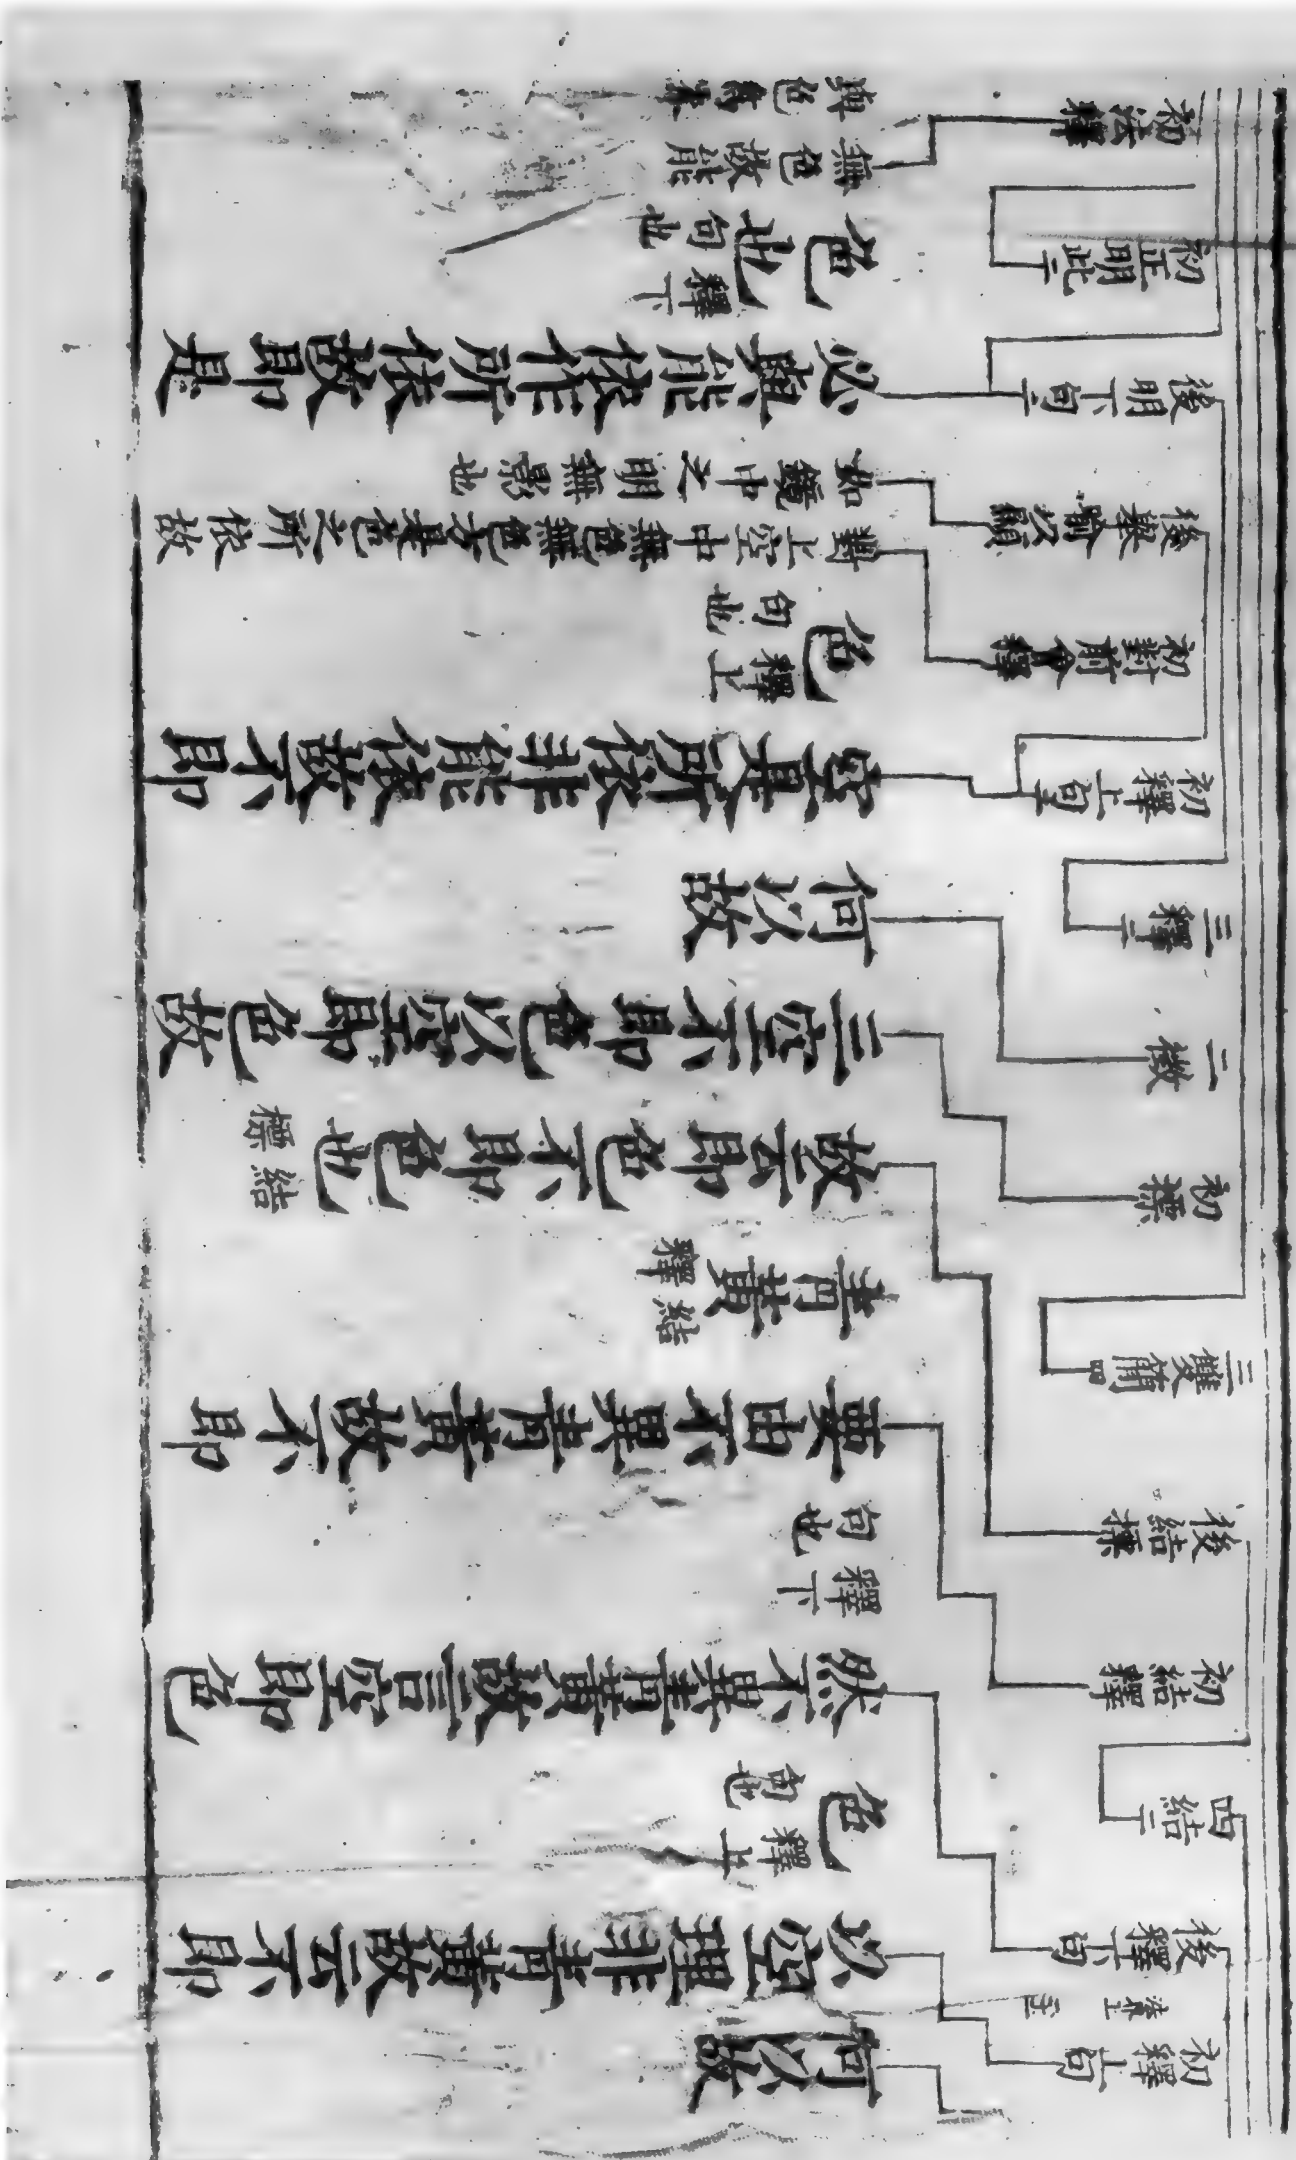 初釋上句
後釋下句
四結二
初結釋
後結標
三雙簡四
初標
二徵
三釋二
初釋上句二
初對前會釋
後舉喻以顯
後明下句二
初正明此二
初法釋
何以故
以空理非青黃故云不即
色 釋上句也
然不異青黃故言空即色
釋下句也
要由不異青黃故不即
青黃 結釋
故云即色不即色也 結標
三空不即色以空即色故
何以故
空是所依非能依故不即
色 釋上句也
對上空中無色無色方是色之所依故
如鏡中之明無影也
必與能依作所依故即是
色也 釋下句也
無色故能
與色為本